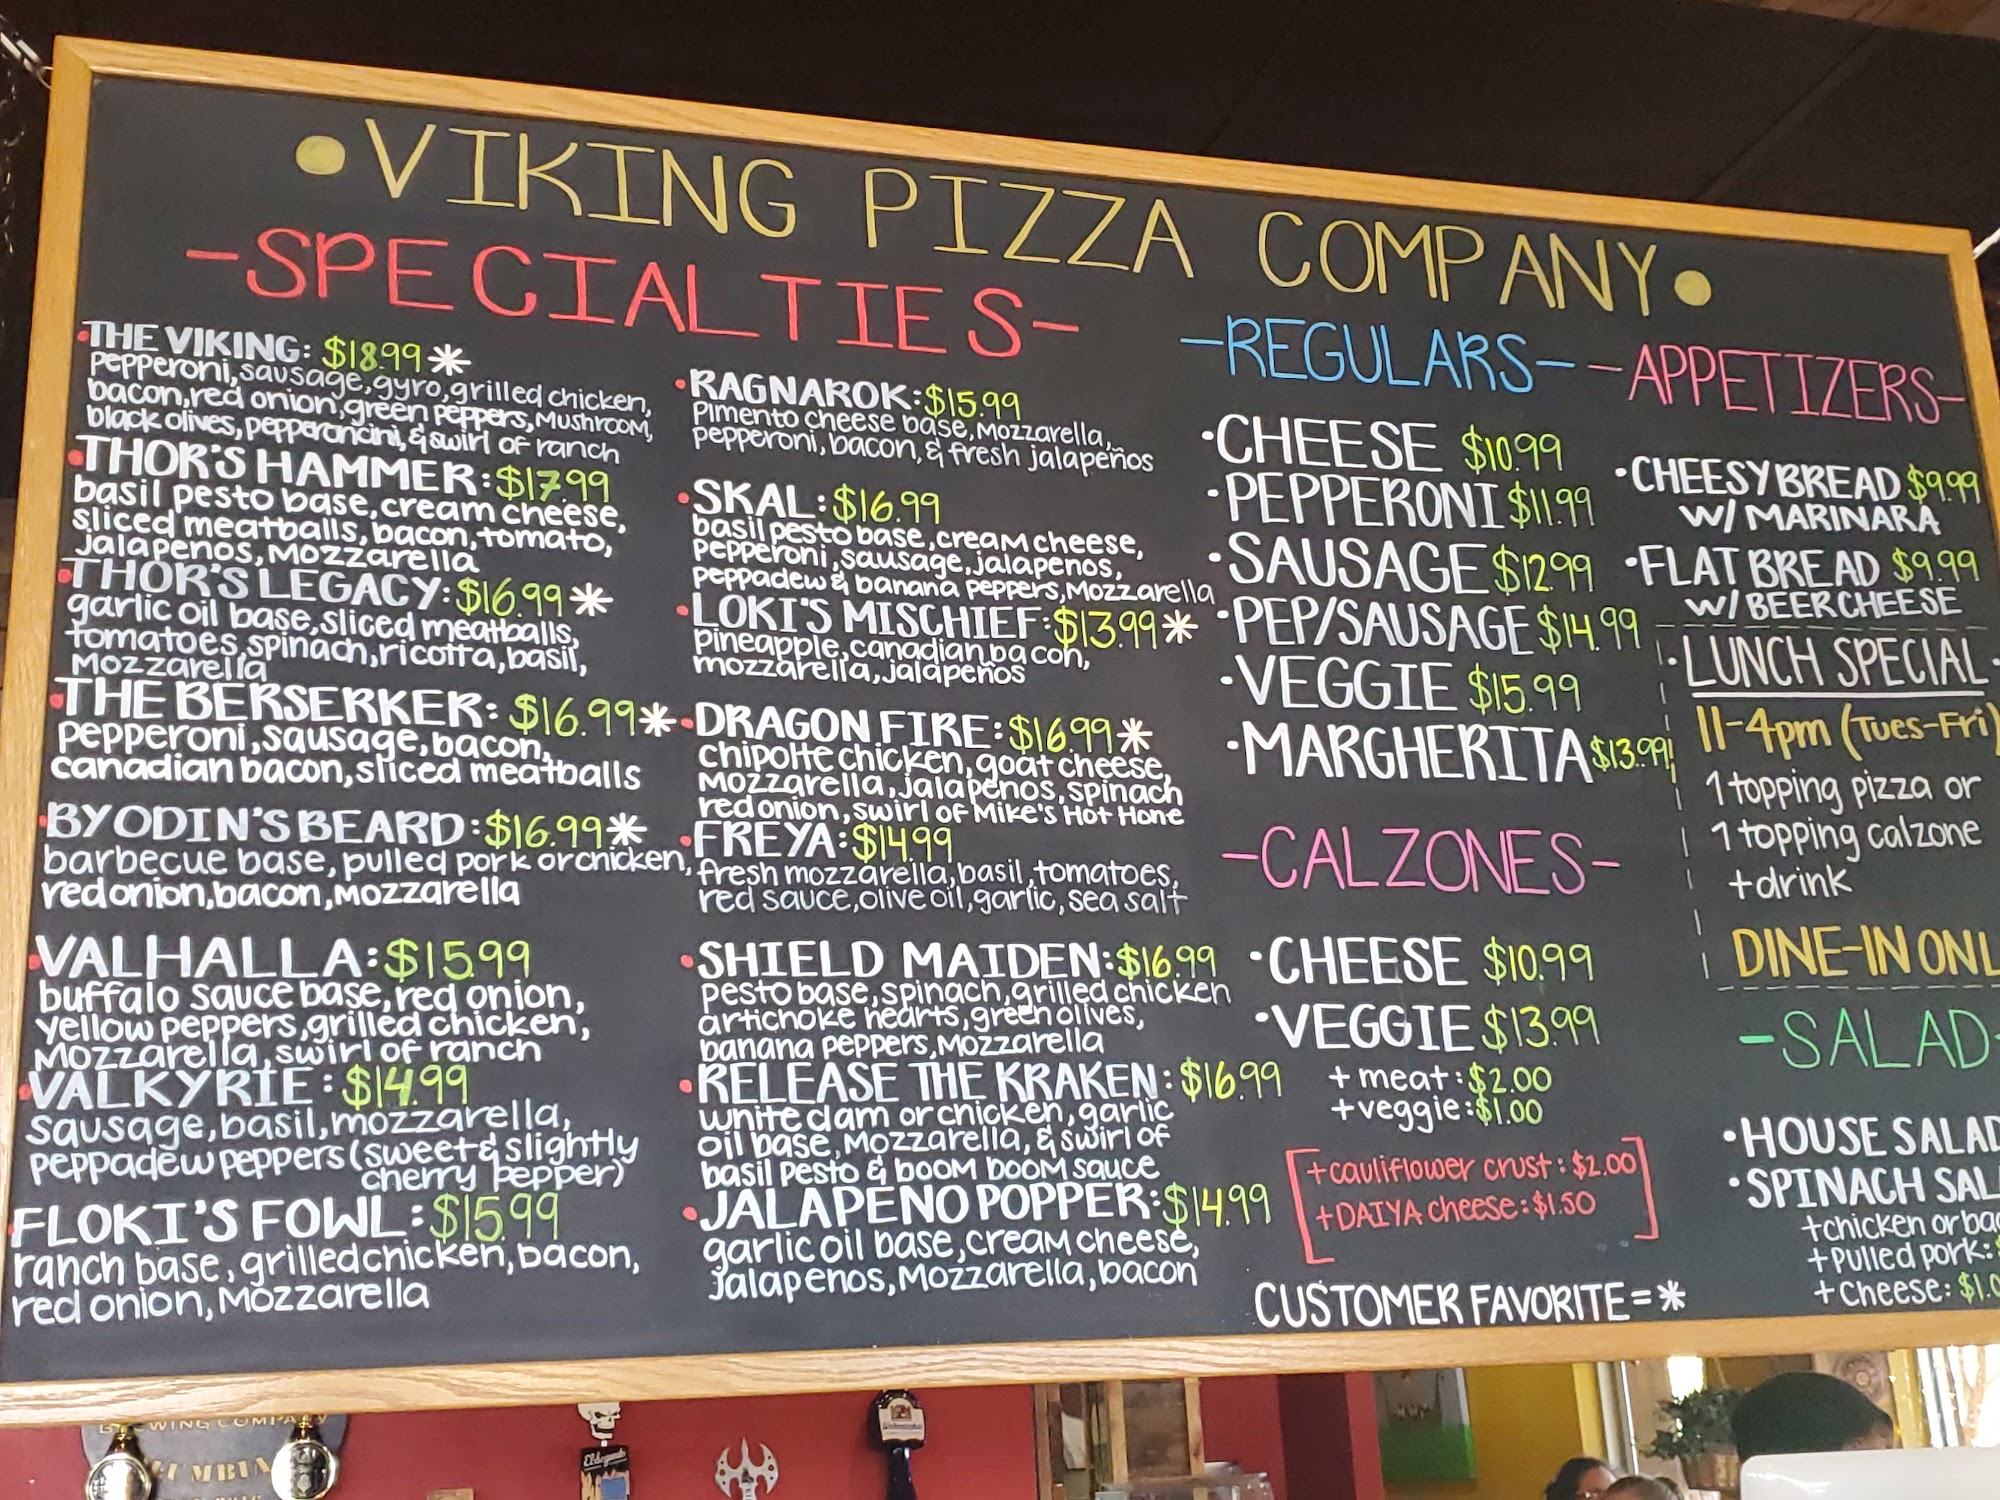 •VIKING PIZZA COMPANY•
-SPECIALTIES-
•THE VIKING: $18.99*
pepperoni, sausage, gyro, grilled chicken,
bacon, red onion, green peppers, mushroom,
black olives, pepperoncini, & swirl of ranch
•THOR'S HAMMER: $17.99
basil pesto base, cream cheese,
sliced meatballs, bacon, tomato,
jalapenos, mozzarella
•THOR'S LEGACY: $16.99*
garlic oil base, sliced meatballs,
tomatoes, spinach, ricotta, basil,
mozzarella
•THE BERSERKER: $16.99*
pepperoni, sausage, bacon,
canadian bacon, sliced meatballs
•BY ODIN'S BEARD: $16.99*
barbecue base, pulled pork or chicken,
red onion, bacon, mozzarella
•VALHALLA: $15.99
buffalo sauce base, red onion,
yellow peppers, grilled chicken,
mozzarella, swirl of ranch
•VALKYRIE: $14.99
sausage, basil, mozzarella,
peppadew peppers (sweet & slightly
cherry pepper)
•FLOKI'S FOWL: $15.99
ranch base, grilled chicken, bacon,
red onion, mozzarella
•RAGNAROK: $15.99
pimento cheese base, mozzarella,
pepperoni, bacon, & fresh jalapeños
•SKAL: $16.99
basil pesto base, cream cheese,
pepperoni, sausage, jalapenos,
peppadew & banana peppers, mozzarella
•LOKI'S MISCHIEF: $13.99*
pineapple, canadian bacon,
mozzarella, jalapeños
•DRAGON FIRE: $16.99*
chipolte chicken, goat cheese,
mozzarella, jalapenos, spinach
red onion, swirl of Mike's Hot Hone
•FREYA: $14.99
fresh mozzarella, basil, tomatoes,
red sauce, olive oil, garlic, sea salt
•SHIELD MAIDEN: $16.99
pesto base, spinach, grilled chicken
artichoke hearts, green olives,
banana peppers, mozzarella
•RELEASE THE KRAKEN: $16.99
white clam or chicken, garlic
oil base, mozzarella, & swirl of
basil pesto & boom boom sauce
•JALAPENO POPPER: $14.99
garlic oil base, cream cheese,
jalapenos, mozzarella, bacon
-REGULARS-
•CHEESE $10.99
•PEPPERONI $11.99
•SAUSAGE $12.99
•PEP/SAUSAGE $14.99
•VEGGIE $15.99
•MARGHERITA $13.99
-CALZONES-
•CHEESE $10.99
•VEGGIE $13.99
+meat: $2.00
+veggie: $1.00
[+cauliflower crust: $2.00]
+DAIYA cheese: $1.50
CUSTOMER FAVORITE = *
-APPETIZERS-
•CHEESY BREAD $9.99
W/ MARINARA
•FLAT BREAD $9.99
W/ BEER CHEESE
•LUNCH SPECIAL•
11-4pm (Tues-Fri)
1 topping pizza or
1 topping calzone
+drink
DINE-IN ONL
-SALAD-
•HOUSE SALAD
•SPINACH SAL
+chicken or bac
+pulled pork: $
+cheese: $1.0
BREWING COMPANY
UMBIA